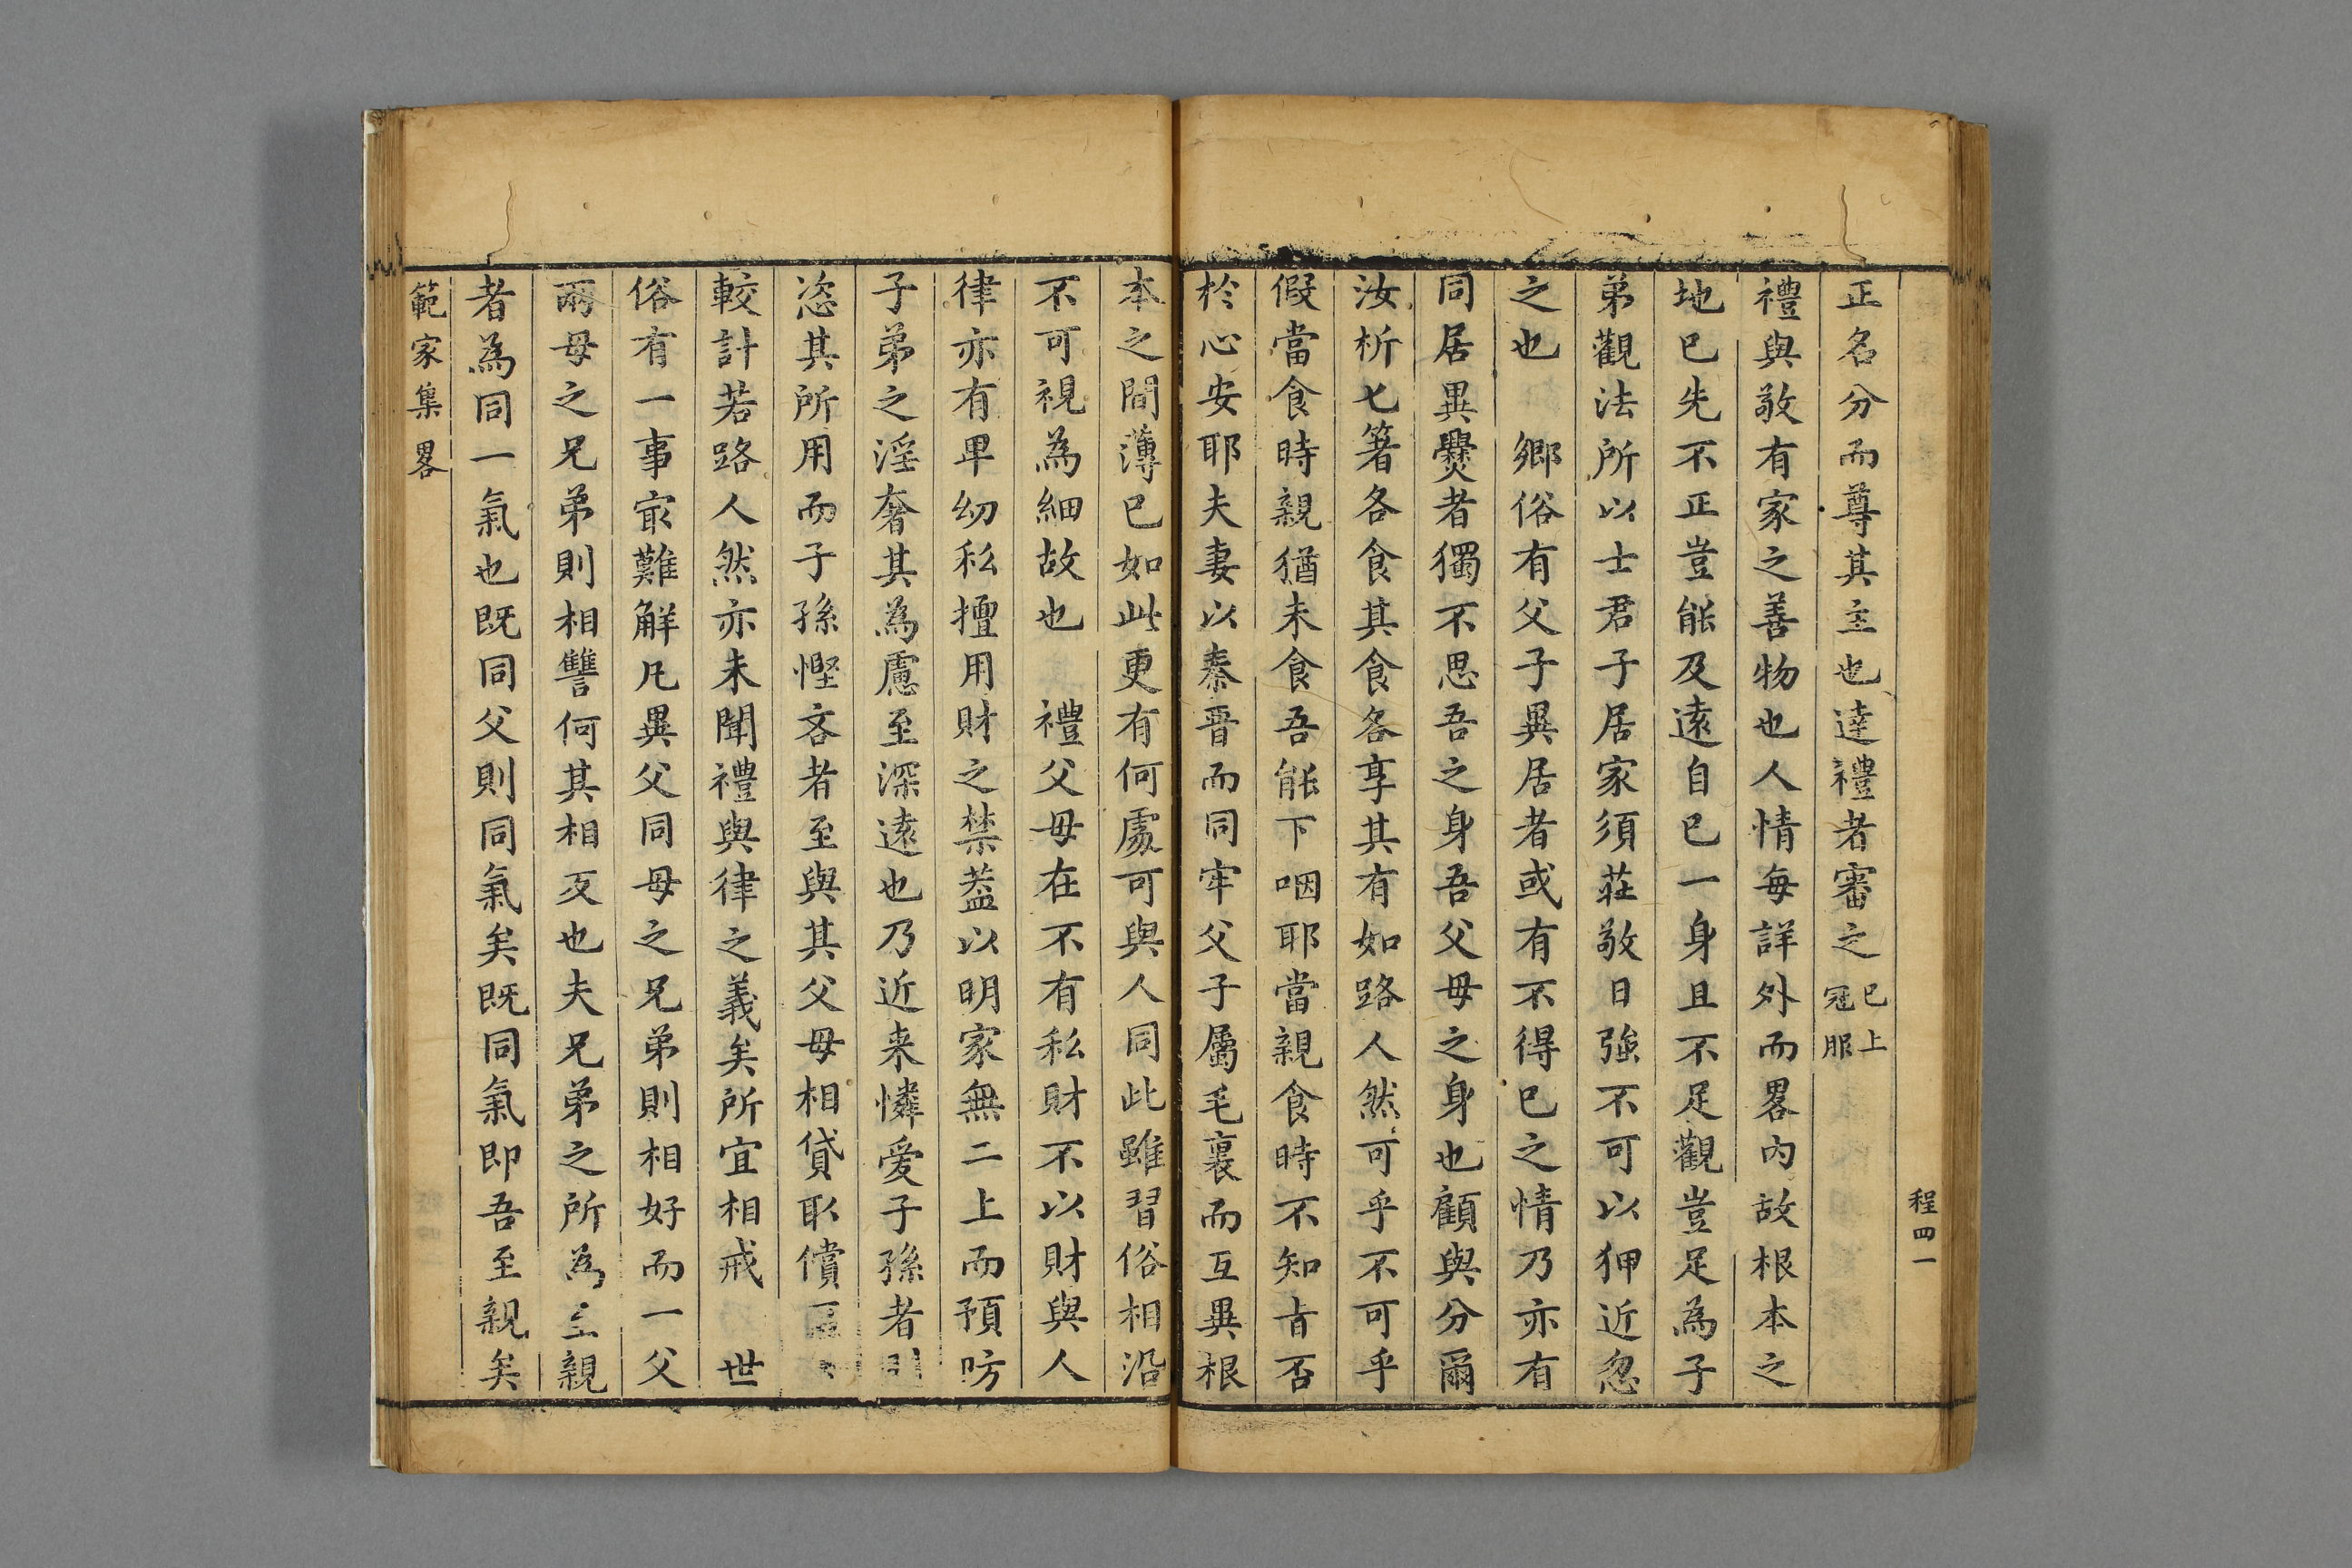 程四一
正名分而尊其主也達禮者審之已上冠服
禮與敬有家之善物也人情每詳外而畧內故根本之
地已先不正豈能及遠自已一身且不足觀豈足為子
弟觀法所以士君子居家須莊敬日強不可以狎近忽
之也　鄉俗有父子異居者或有不得已之情乃亦有
同居異爨者獨不思吾之身吾父母之身也顧與分爾
汝析七箸各食其食各享其有如路人然可乎不可乎
假當食時親猶未食吾能下咽耶當親食時不知旨否
於心安耶夫妻以秦晉而同牢父子屬毛裏而互異根
本之間薄已如此更有何處可與人同此雖習俗相沿
不可視為細故也　禮父母在不有私財不以財與人
律亦有卑幼私擅用財之禁蓋以明家無二上而預防
子弟之淫奢其為慮至深遠也乃近来憐愛子孫者
恣其所用而子孫慳吝者至與其父母相貸取償
較計若路人然亦未聞禮與律之義矣所宜相戒　世
俗有一事㝡難解凡異父同母之兄弟則相好而一父
兩母之兄弟則相讐何其相反也夫兄弟之所為至親
者為同一氣也既同父則同氣矣既同氣即吾至親矣
範家集畧